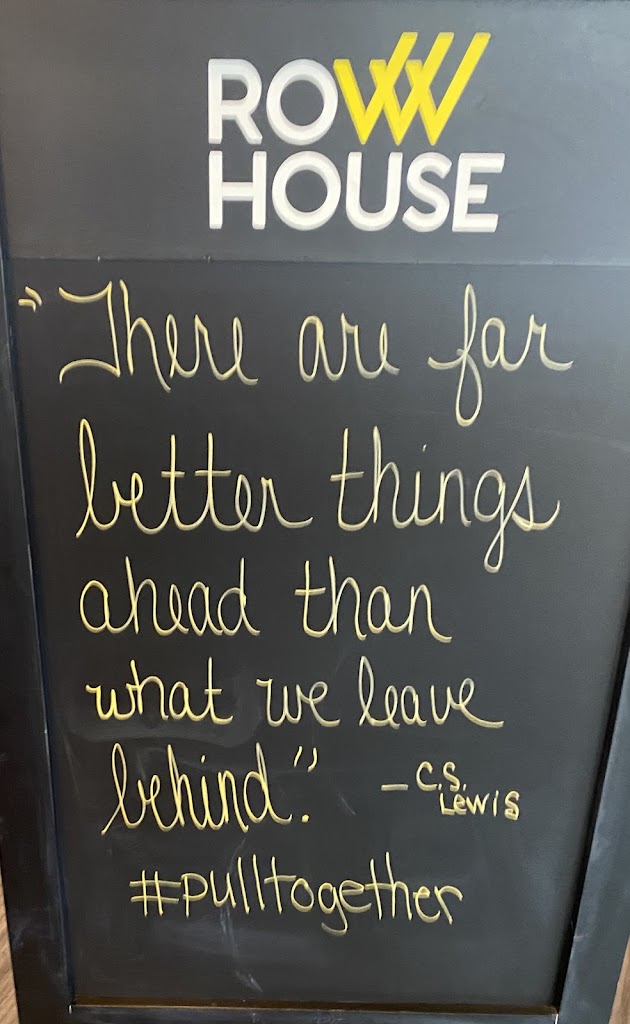 ROW
HOUSE
"There are far
better things
ahead than
what we leave
behind."
— C.S.
Lewis
#pulltogether